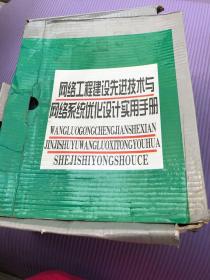 网络工程建设先进技术与
网络系统优化设计实用手册
WANGLUOGONGCHENGJIANSHEXIAN
JINJISHUYUWANGLUOXITONGYOUHUA
SHEJISHIYONGSHOUCE